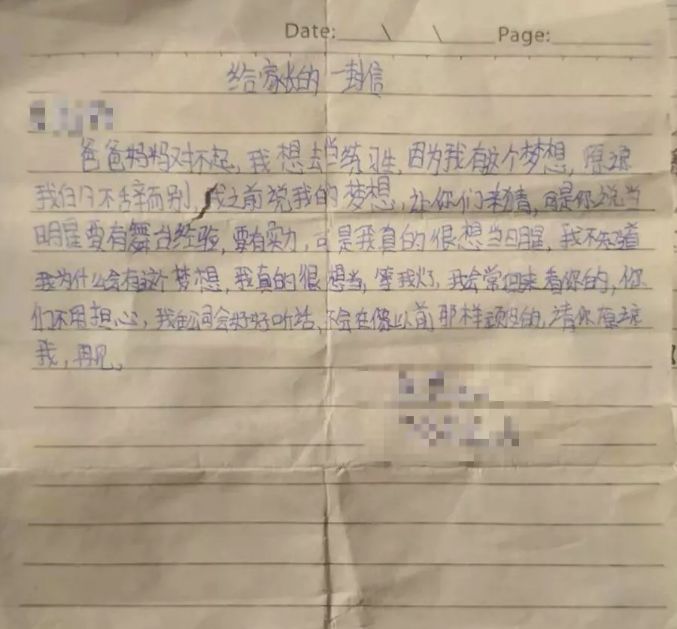 Date: \ \ Page:
给家长的一封信
爸爸妈妈对不起,我想去当练习生,因为我有这个梦想,原谅
我的不辞而别,我之前说我的梦想,让你们来猜,可是你说当
明星要有舞台经验,要有实力,可是我真的很想当明星,我不知道
我为什么会有这个梦想,我真的很想当,等我火了,我会常回来看你的,你
们不用担心,我会好好听话,不会在像以前那样顽皮的,请你原谅
我,再见。